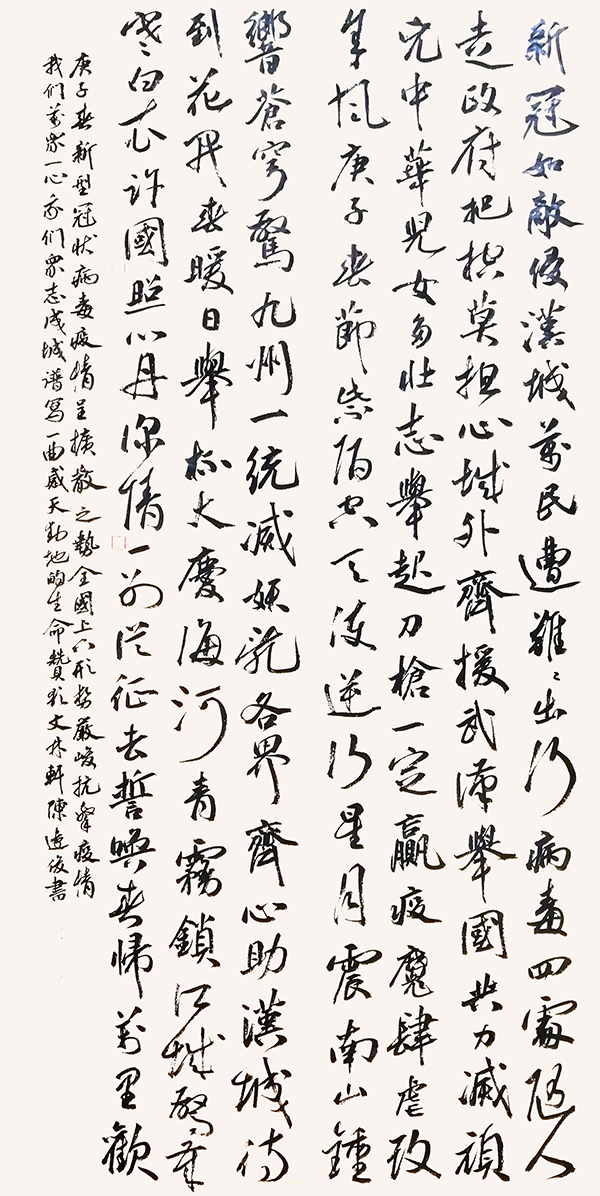 新冠如敵侵漢城萬民遭難〻出行病毒四處隨人
走政府把控莫担心城外齊援武漢舉國共力滅頑
兇中華兒女多壯志舉起刀槍一定贏疫魔肆虐
年風庚子春節紫陌空天使逆行星月震南山鐘
響蒼穹驚九州一統滅妖氛各界齊心助漢城待
到花開春暖日舉杯大慶海河青霧鎖江城
寒白衣許國照心丹深情一別從征去誓喚春歸萬里歡
庚子春新型冠狀病毒疫情呈擴散之勢全國上下形势嚴峻抗擊疫情
我们萬眾一心我们眾志成城谱寫一曲感天動地的生命贊歌文林軒陳遠俊書